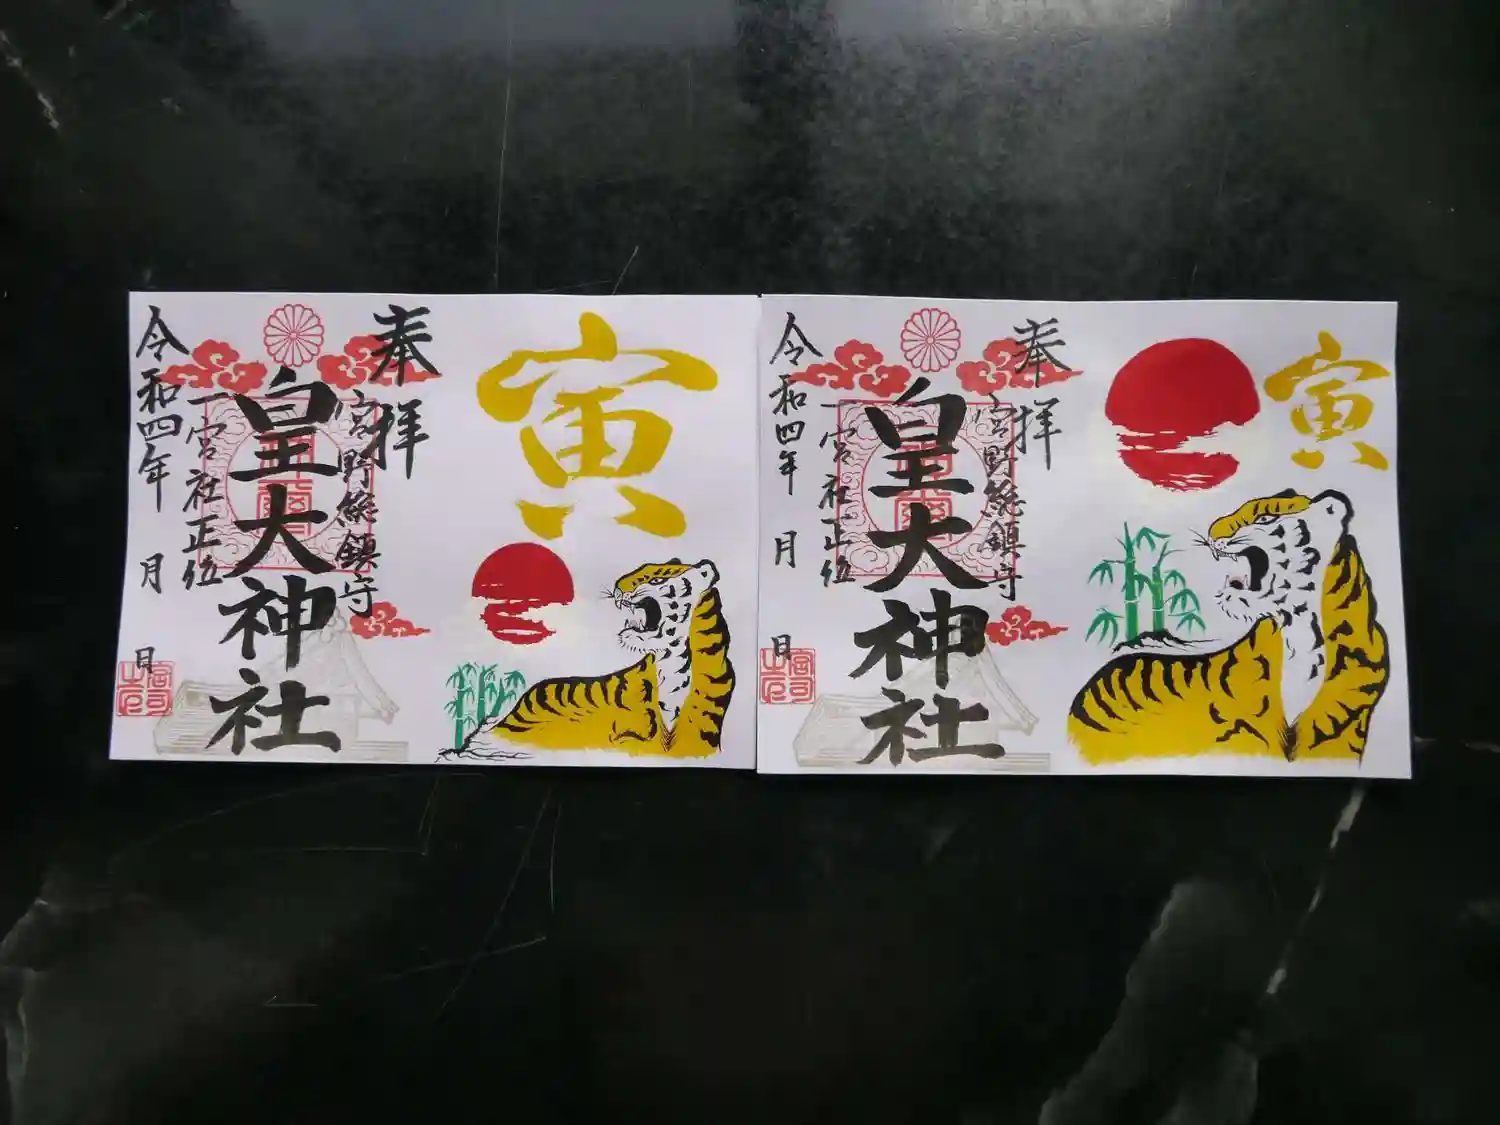 寅
奉拝
宮野総鎮守
皇大神社
一宮社正位
令和四年 月 日
宮司之印
寅
奉拝
宮野総鎮守
皇大神社
一宮社正位
令和四年 月 日
宮司之印